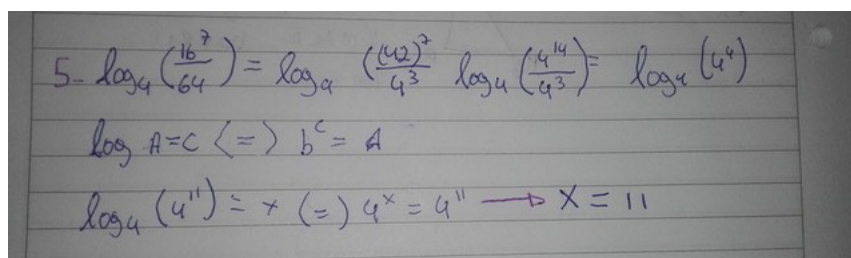 5- log₄ (16⁷/64) = log₄ ((42)⁷/4³ log₄ (4¹⁴/4³) = log₄ (4⁴)
log A=C (=) b^c = A
log₄ (4¹¹) = x (=) 4^x = 4¹¹ → X = 11